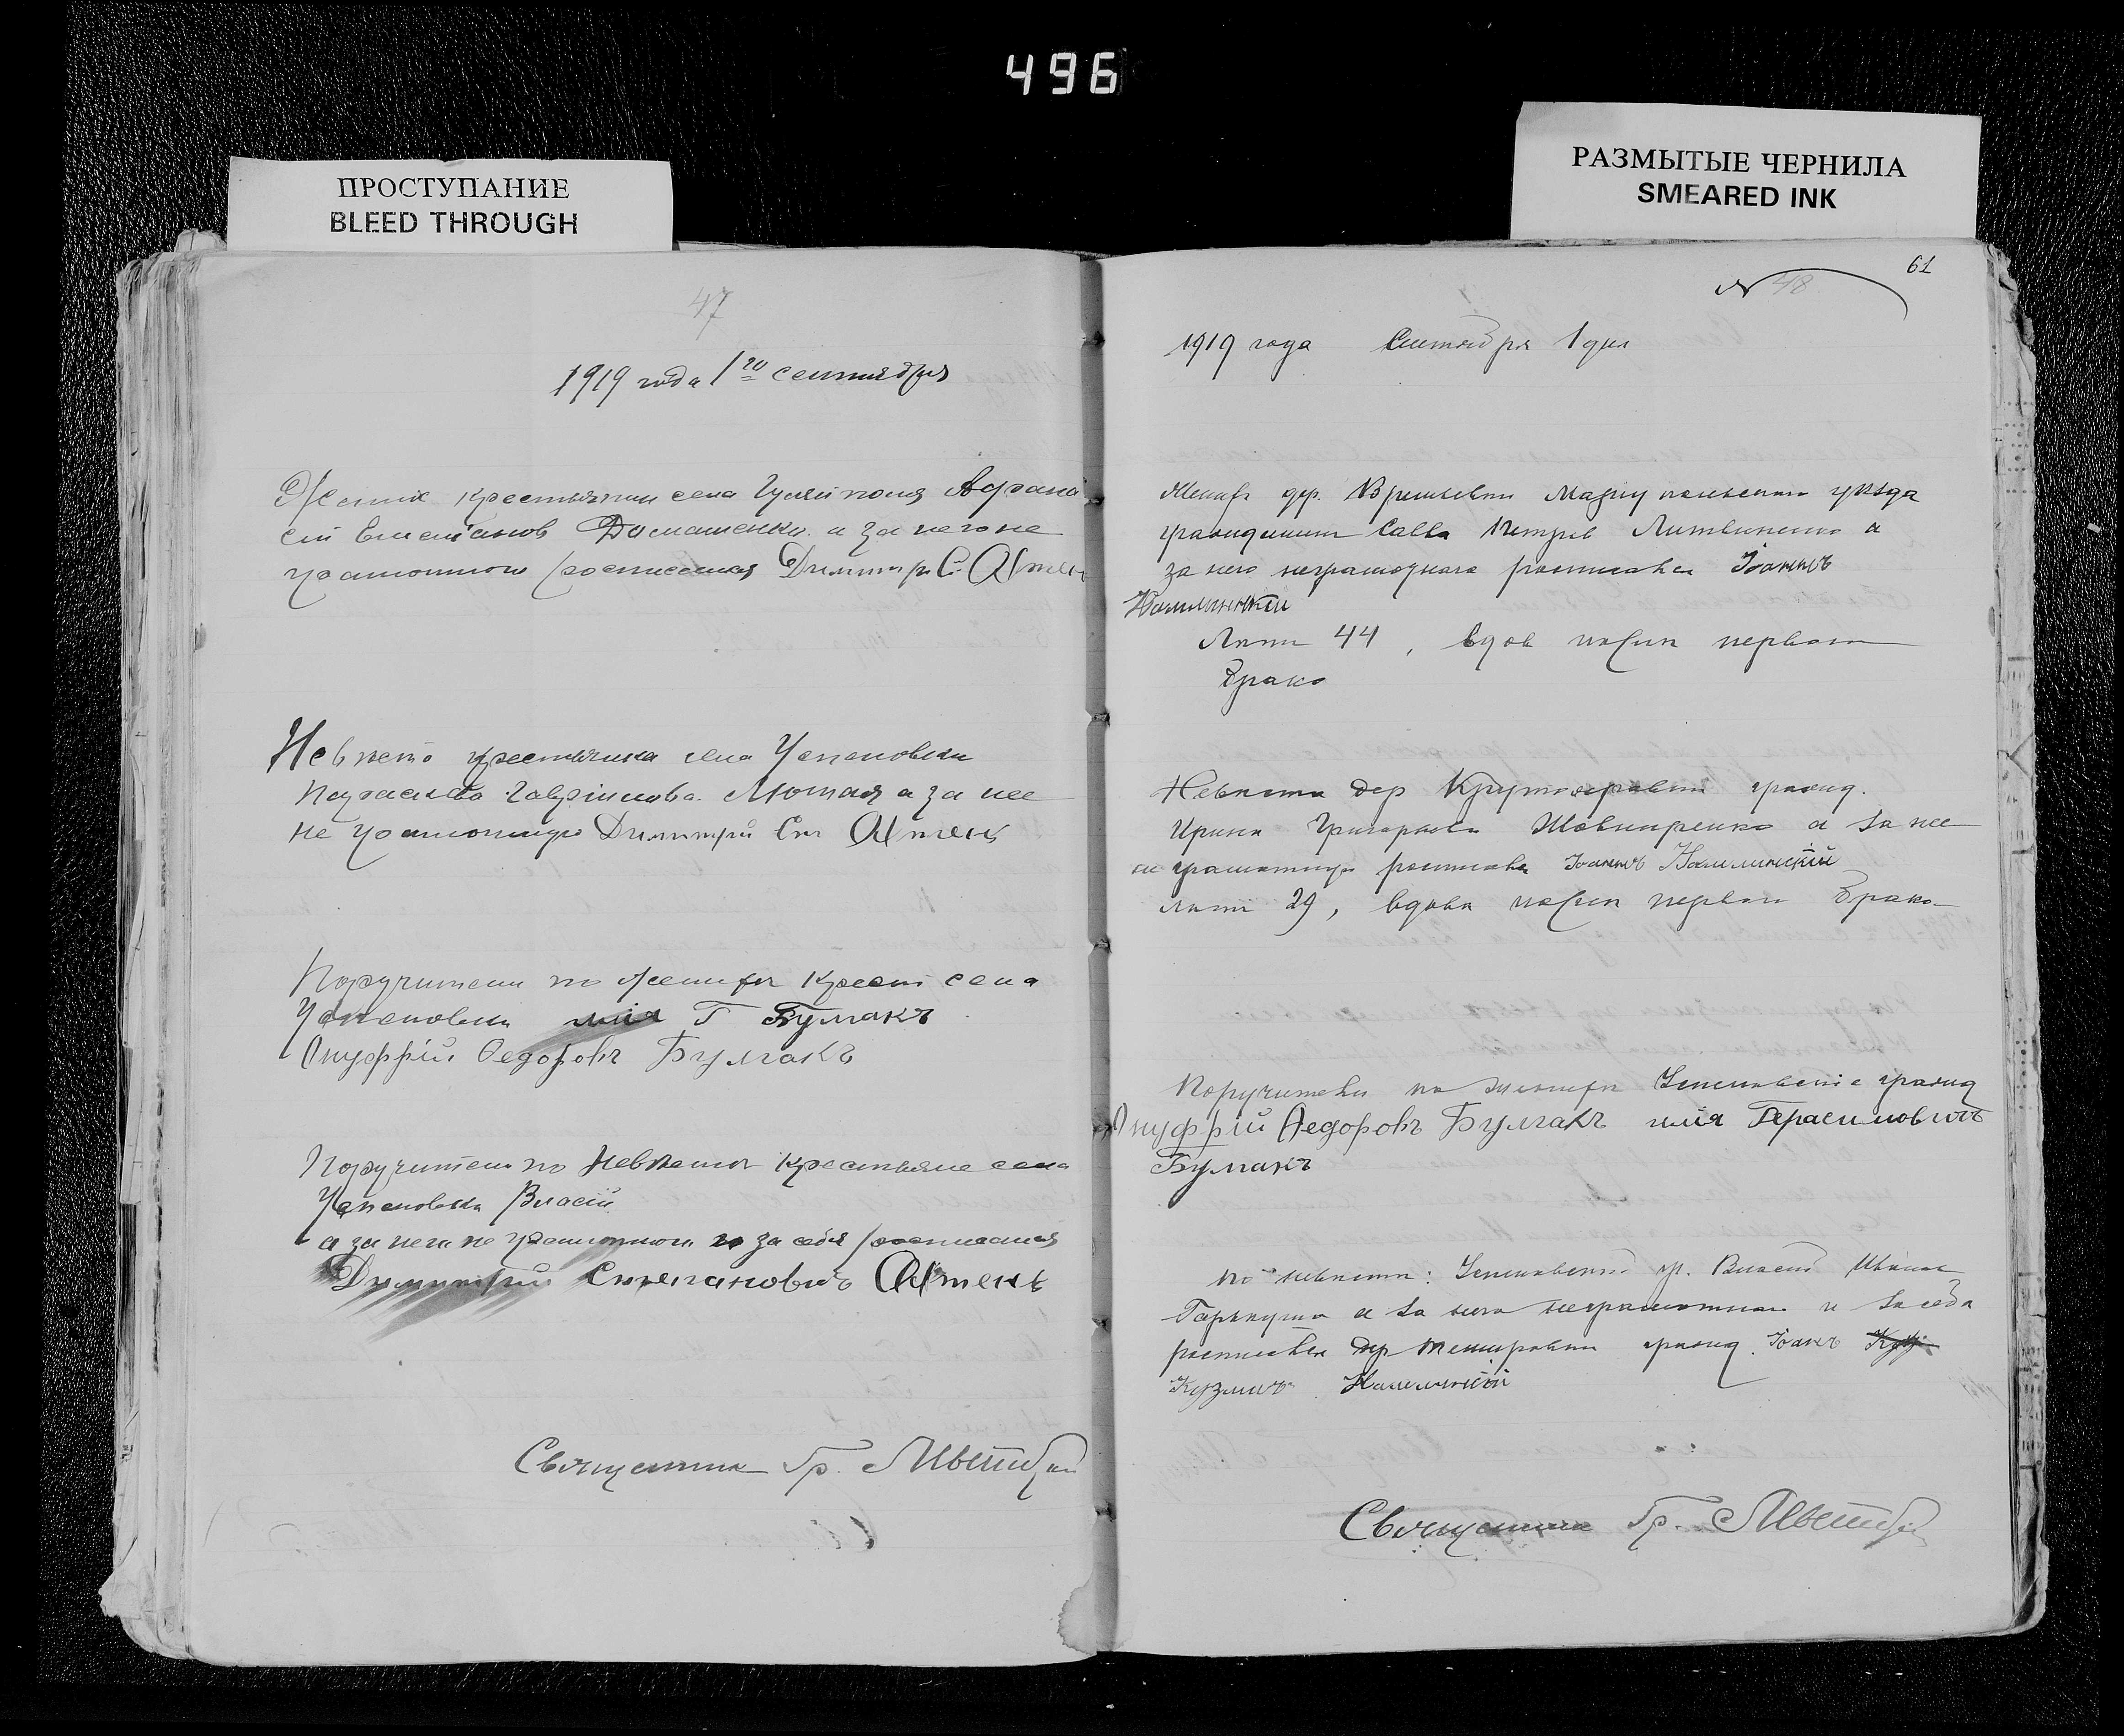 496
ПРОСТУПАНИЕ
BLEED THROUGH
РАЗМЫТЫЕ ЧЕРНИЛА
SMEARED INK
47
1919 года 1го сентября
Жених крестьянин села Гуляйполя Афана
сій Емеліанов Домашенко а за него не
грамотного росписался Димитр. С.
Невѣста крестьянка села Успеновки
Параскева Гавріилова Лютая а за нее
не грамотную Димитрій Ст.
Поручители по женихѣ крест села
Успеновки илія Г Булгакъ
Онуфрій Федоровъ Булгакъ
Поручители по Невѣстѣ крестьяне села
Успеновки Власій
а за него не грамотного и за себя росписался
Димитрий Степановичъ
Священник Гр.
61
№ 48
1919 года Сентября 1 дня
Жених дер. Мариупольского уѣзда
гражданин Савва Петров Литвиненко а
за него неграмотного росписався Іоаннъ
Калиминскій
Лѣт 44, вдов послѣ первого
брака
Невѣста дер гражд.
Ирина Григорьева а за нее
не грамотную росписався Іоаннъ Калиминскій
лѣт 29, вдова послѣ первого брака
Поручители по женихѣ Успеновскіе гражд
Онуфрій Федоровъ Булгакъ илія Герасимовичъ
Булгакъ
по невѣстѣ: Успеновский гр. Власій Иванов
Гаркуша а за него неграмотного и за себя
росписався дер Темировки гражд. Іоанъ
Кузмичъ Калиминскій
Священник Гр.